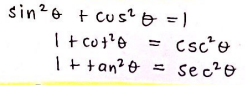 sin²θ + cos²θ = 1
1 + cot²θ = csc²θ
1 + tan²θ = sec²θ